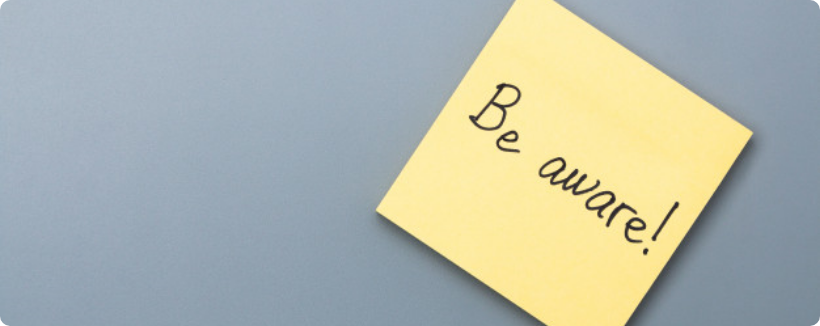 Be aware!